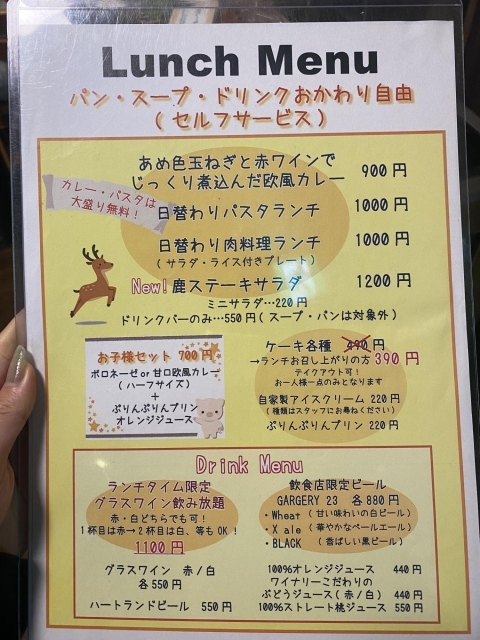 Lunch Menu
パン・スープ・ドリンクおかわり自由
(セルフサービス)
あめ色玉ねぎと赤ワインで
じっくり煮込んだ欧風カレー 900円
カレー・パスタは
大盛り無料!
日替わりパスタランチ 1000円
日替わり肉料理ランチ 1000円
(サラダ・ライス付きプレート)
New!鹿ステーキサラダ 1200円
ミニサラダ…220円
ドリンクバーのみ…550円(スープ・パンは対象外)
お子様セット 700円
ボロネーゼor甘口欧風カレー
(ハーフサイズ)
+
ぷりんぷりんプリン
オレンジジュース
ケーキ各種 490円
→ランチお召し上がりの方 390円
テイクアウト可!
お一人様一点のみとなります
自家製アイスクリーム 220円
(種類はスタッフにお尋ねください)
ぷりんぷりんプリン 220円
Drink Menu
ランチタイム限定
グラスワイン飲み放題
赤・白どちらでも可!
1杯目は赤→2杯目は白、等もOK!
1100円
グラスワイン 赤/白
各550円
ハートランドビール 550円
飲食店限定ビール
GARGERY 23 各880円
・Wheat (甘い味わいの白ビール)
・X ale (華やかなペールエール)
・BLACK (香ばしい黒ビール)
100%オレンジジュース 440円
ワイナリーこだわりの
ぶどうジュース(赤/白) 440円
100%ストレート桃ジュース 550円